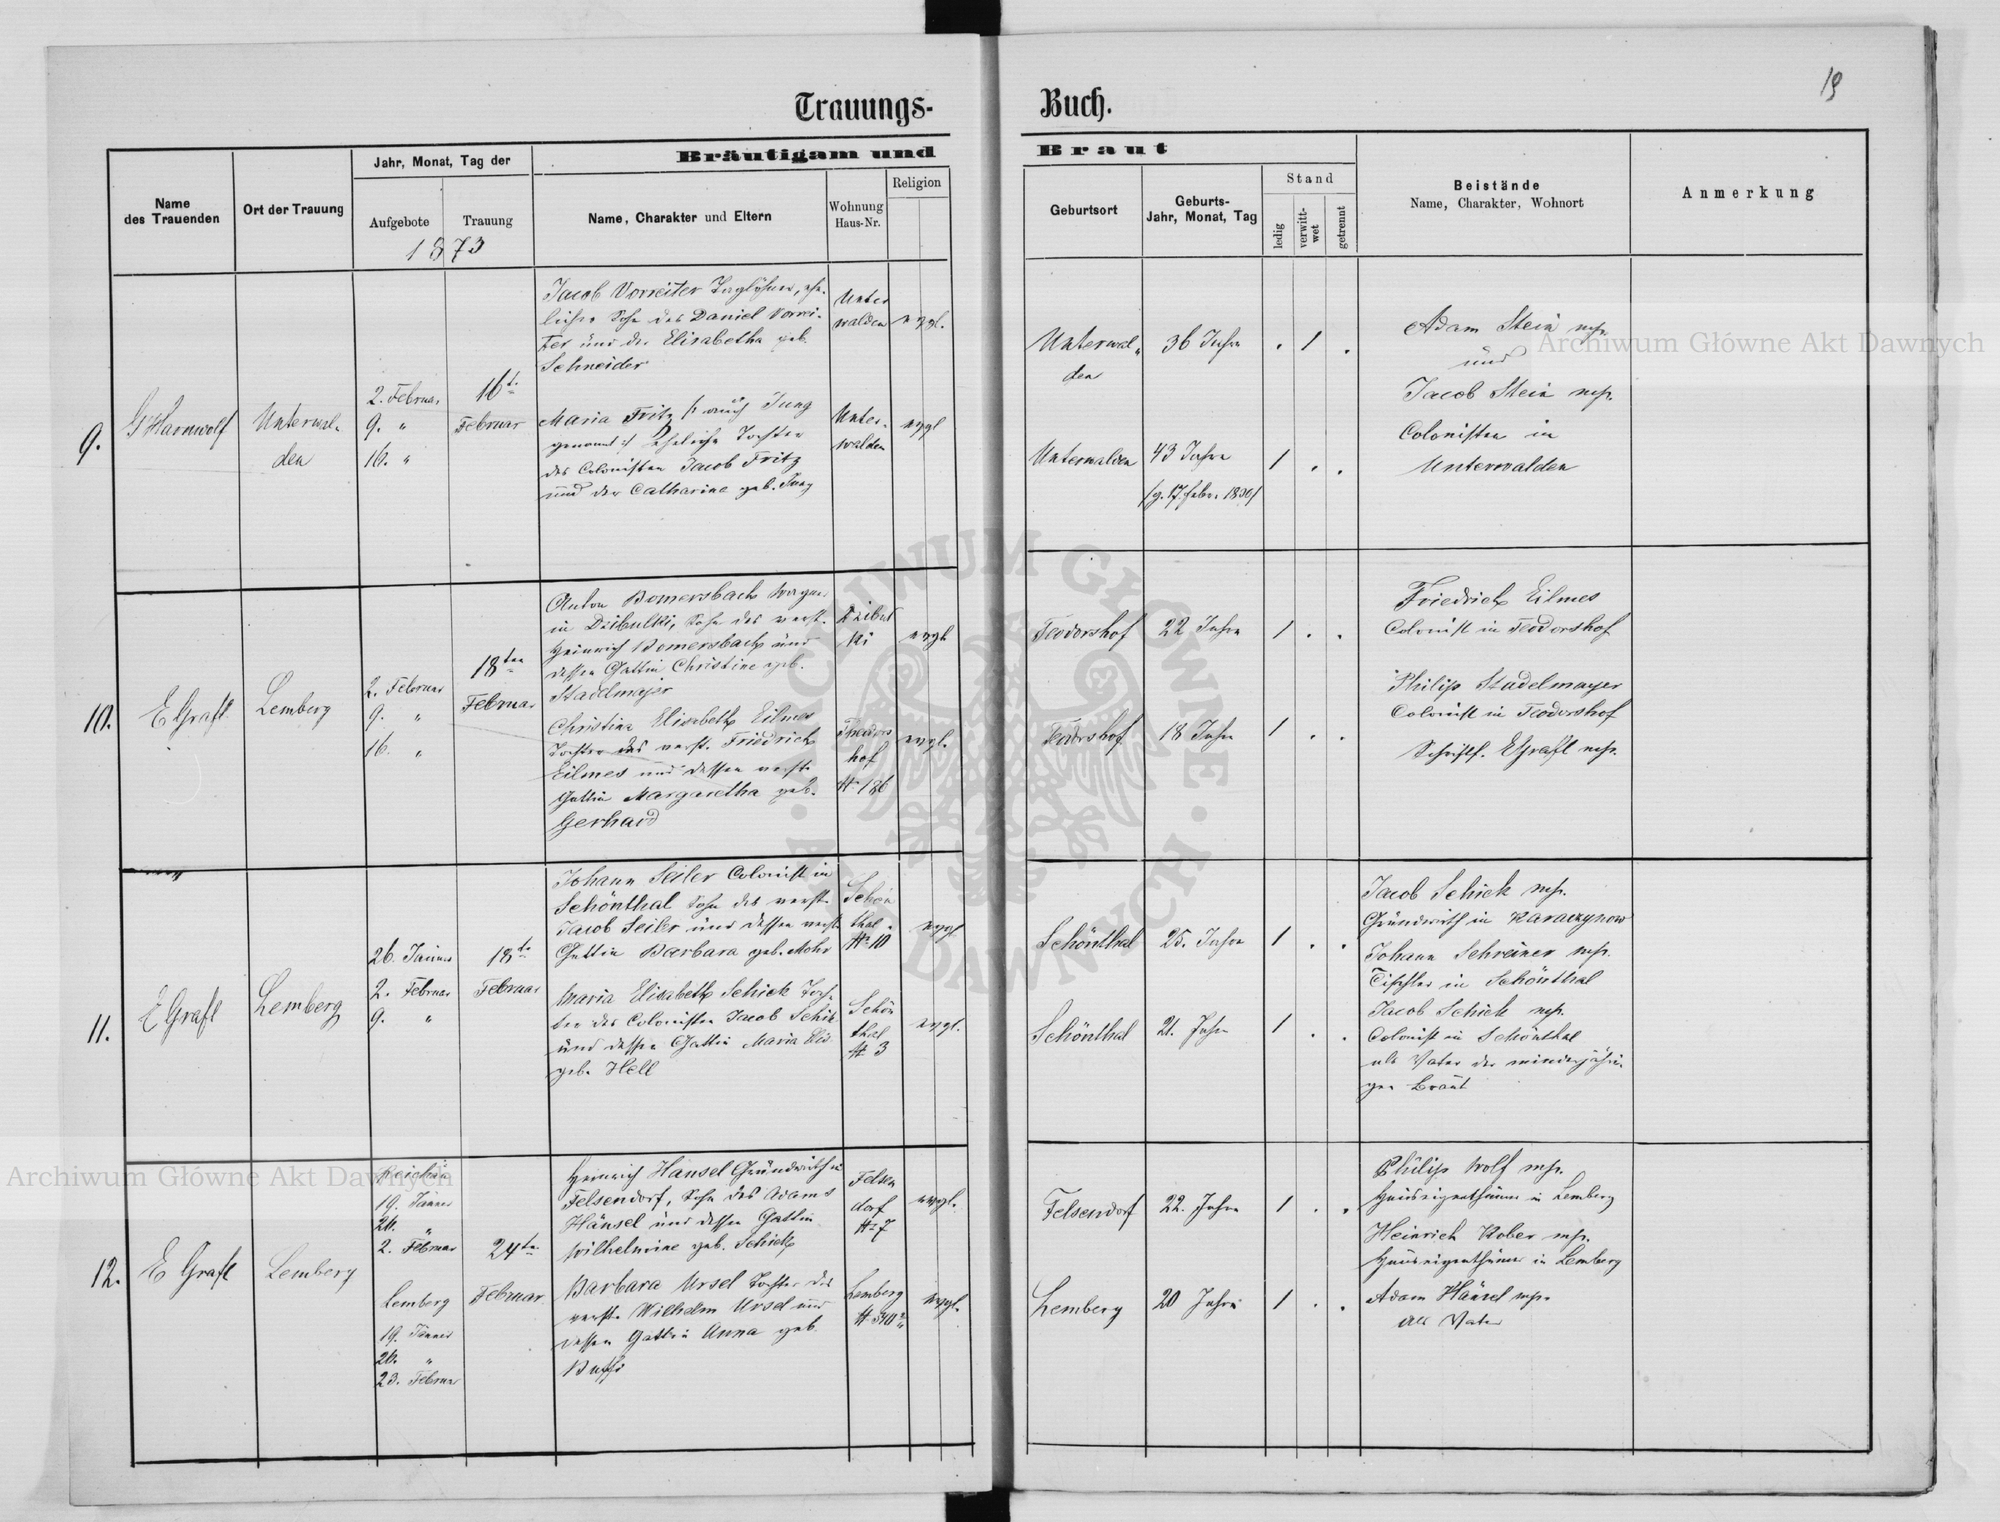 19
Trauungs- Buch.
Bräutigam und Braut
Name
des Trauenden
Ort der Trauung
Jahr, Monat, Tag der
Aufgebote
Trauung
1873
Name, Charakter und Eltern
Wohnung
Haus-Nr.
Religion
Geburtsort
Geburts-
Jahr, Monat, Tag
Stand
ledig
verwitt-
wet
getrennt
Beistände
Name, Charakter, Wohnort
Anmerkung
9.
Unterwal-
den
2. Februar
9. "
16. "
16te
Februar
Jacob Vorreiter Taglöhner, ehe-
licher Sohn des Daniel Vorrei-
ter und der Elisabetha geb.
Schneider
Unter
walden
evgl.
Unterwal-
den
36 Jahre
. 1 .
Maria Fritz /: auch Jung
genannt :/ eheliche Tochter
des Colonisten Jacob Fritz
und der Catharine geb. Jung
Unter-
walden
evgl
Unterwalden
43 Jahre
/g. 17. Febr. 1830/
1 . .
Adam Stein mp.
und
Jacob Stein mp.
Colonisten in
Unterwalden
10.
E Grafl
Lemberg
2. Februar
9. "
16. "
18ten
Februar
Anton Bomersbach
in Dzibulki, Sohn des verst.
Heinrich Bomersbach und
dessen Gattin Christine geb.
Stadlmajer
Dzibul
ki
evgl
Teodorshof
22 Jahre
1 . .
Christina Elisabeth Eilmes
Tochter des verst. Friedrich
Eilmes und dessen verst.
Gattin Margaretha geb.
Gerhard
Theodors
hof
# 186
evgl.
Teodorshof
18 Jahre
1 . .
Friedrich Eilmes
Colonist in Teodorshof
Philip Stadelmayer
Colonist in Teodorshof
Schriftf. E Grafl mp.
11.
E Grafl
Lemberg
26. Jänner
2. Februar
9. "
18te
Februar
Johann Seiler Colonist in
Schönthal Sohn des verst.
Jacob Seiler und dessen verst.
Gattin Barbara geb. Mohr
Schön
thal
# 10
evgl
Schönthal
25. Jahre
1 . .
Maria Elisabeth Schick Toch-
ter des Colonisten Jacob Schik
und dessen Gattin Maria Elis.
geb. Hell
Schön
thal
# 3
evgl.
Schönthal
21. Jahre
1 . .
Jacob Schick mp.
Grundwirth in Karaczynow
Johann Schreiner mp.
Tischler in Schönthal
Jacob Schick mp.
Colonist in Schönthal
als Vater der minderjähri-
gen Braut
12.
E Grafl
Lemberg
19. Jänner
26. "
2. Februar
Lemberg
19. Jänner
26. "
23. Februar
24te
Februar
Heinrich Hänsel Grundwirth in
Felsendorf, Sohn des Adam
Hänsel und dessen Gattin
Wilhelmine geb. Schick
Felsen
dorf
# 7
evgl.
Felsendorf
22. Jahre
1 . .
Barbara Ursel Tochter des
verst. Wilhelm Ursel und
dessen Gattin Anna geb.
Lemberg
evgl.
Lemberg
20 Jahre
1 . .
Philip Wolf mp.
Hauseigenthümer in Lemberg
Heinrich Kober mp.
Hauseigenthümer in Lemberg
Adam Hänsel mp.
als Vater
Archiwum Główne Akt Dawnych
Archiwum Główne Akt Dawnych
ARCHIWUM GŁÓWNE AKT DAWNYCH